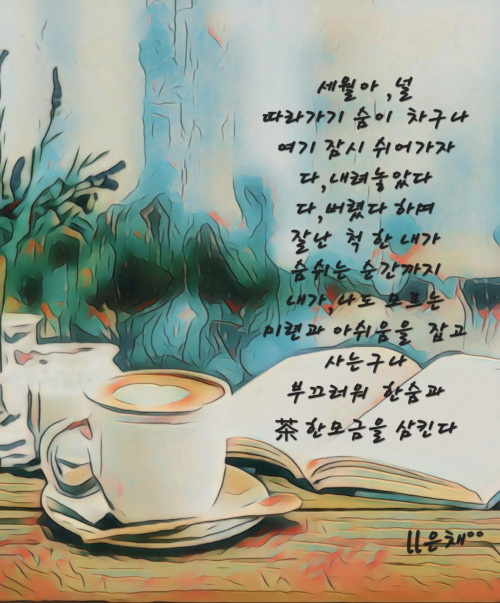 세월아 ,널
따라가기 숨이 차구나
여기 잠시 쉬어가자
다,내려놓았다
다,버렸다 하며
잘난 척 한 내가
숨쉬는 순간까지
내가,나도 모르는
미련과 아쉬움을 잡고
사는구나
부끄러워 한숨과
茶 한모금을 삼킨다
ll은채°°